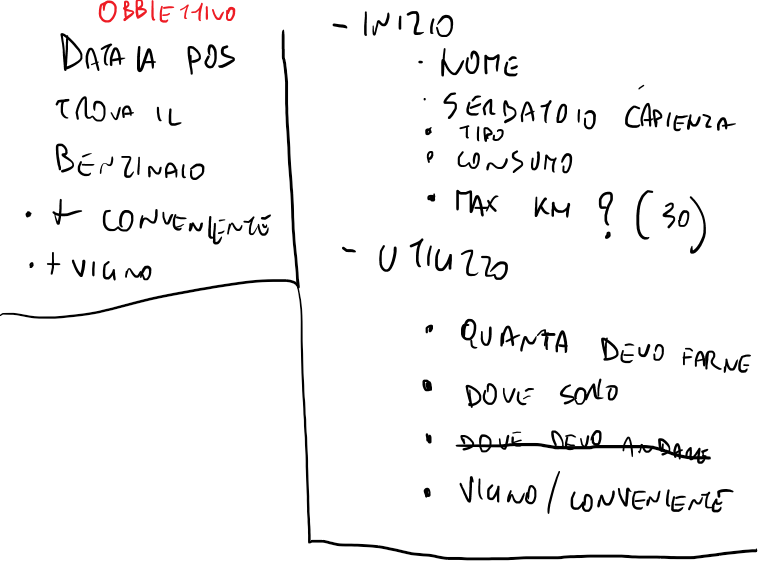 OBBIETTIVO
DATA LA POS
TROVA IL
BENZINAIO
• + CONVENIENTE
• + VICINO
- INIZIO
• NOME
• SERBATOIO CAPIENZA
• TIPO
• CONSUMO
• MAX KM ? (30)
- UTILIZZO
• QUANTA DEVO FARNE
• DOVE SONO
• DOVE DEVO ANDARE
• VICINO / CONVENIENTE